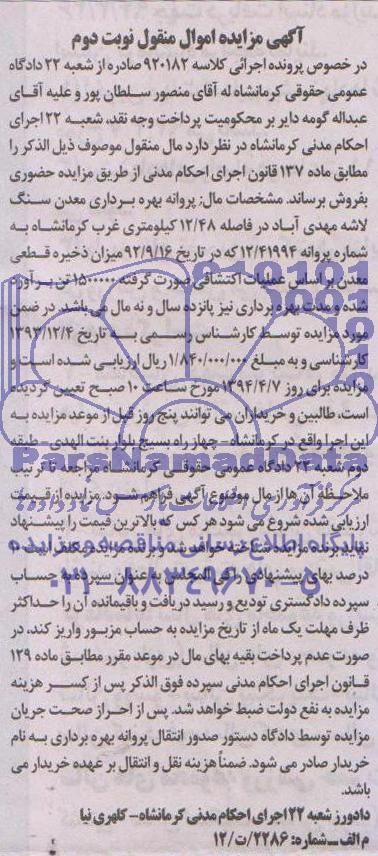 آگهی مزایده اموال منقول نوبت دوم
در خصوص پرونده اجرائی کلاسه ۹۲۰۱۸۲ صادره از شعبه ۲۲ دادگاه
عمومی حقوقی کرمانشاه له آقای منصور سلطان پور و علیه آقای
عبداله گومه دایر بر محکومیت پرداخت وجه نقد، شعبه ۲۲ اجرای
احکام مدنی کرمانشاه در نظر دارد مال منقول موصوف ذیل الذکر را
مطابق ماده ۱۳۷ قانون اجرای احکام مدنی از طریق مزایده حضوری
بفروش برساند. مشخصات مال: پروانه بهره برداری معدن سنگ
لاشه مهدی آباد در فاصله ۱۲/۴۸ کیلومتری غرب کرمانشاه به
شماره پروانه ۱۲/۴۱۹۹۴ که در تاریخ ۹۲/۹/۱۶ میزان ذخیره قطعی
معدن بر اساس عملیات اکتشافی صورت گرفته ۱۵۰۰۰۰۰ تن برآورد
شده و مدت بهره برداری نیز پانزده سال و نه مال می باشد. در ضمن
مورد مزایده توسط کارشناس رسمی به تاریخ ۱۳۹۳/۱۲/۴
کارشناسی و به مبلغ ۱/۸۴۰/۰۰۰/۰۰۰ ریال ارزیابی شده است و
مزایده برای روز ۱۳۹۴/۴/۷ مورخ ساعت ۱۰ صبح تعیین گردیده
است، طالبین و خریداران می توانند پنج روز قبل از موعد مزایده به
این اجرا واقع در کرمانشاه - چهار راه بسیج بلوار بنت الهدی - طبقه
دوم شعبه ۲۳ دادگاه عمومی حقوقی کرمانشاه مراجعه تا ترتیب
ملاحظه آن ها از مال موضوع آگهی فراهم شود. مزایده از قیمت
ارزیابی شده شروع می شود هر کس که بالاترین قیمت را پیشنهاد
نماید برنده مزایده شناخته خواهد شد و برنده مزایده مکلف است ۱۰
درصد بهای پیشنهادی را فی المجلس به عنوان سپرده به حساب
سپرده دادگستری تودیع و رسید دریافت و باقیمانده آن را حداکثر
ظرف مهلت یک ماه از تاریخ مزایده به حساب مزبور واریز کند، در
صورت عدم پرداخت بقیه بهای مال در موعد مقرر مطابق ماده ۱۲۹
قانون اجرای احکام مدنی سپرده فوق الذکر پس از کسر هزینه
مزایده به نفع دولت ضبط خواهد شد. پس از احراز صحت جریان
مزایده توسط دادگاه دستور صدور انتقال پروانه بهره برداری به نام
خریدار صادر می شود. ضمناً هزینه نقل و انتقال بر عهده خریدار می
باشد.
دادورز شعبه ۲۲ اجرای احکام مدنی کرمانشاه - کلهری نیا
م الف - شماره: ۲۲۸۶/ت/۱۲
ParsNamadData
پایگاه اطلاع رسانی مناقصه و مزایده
۰۲۱-۸۸۳۴۹۶۷۰-۵